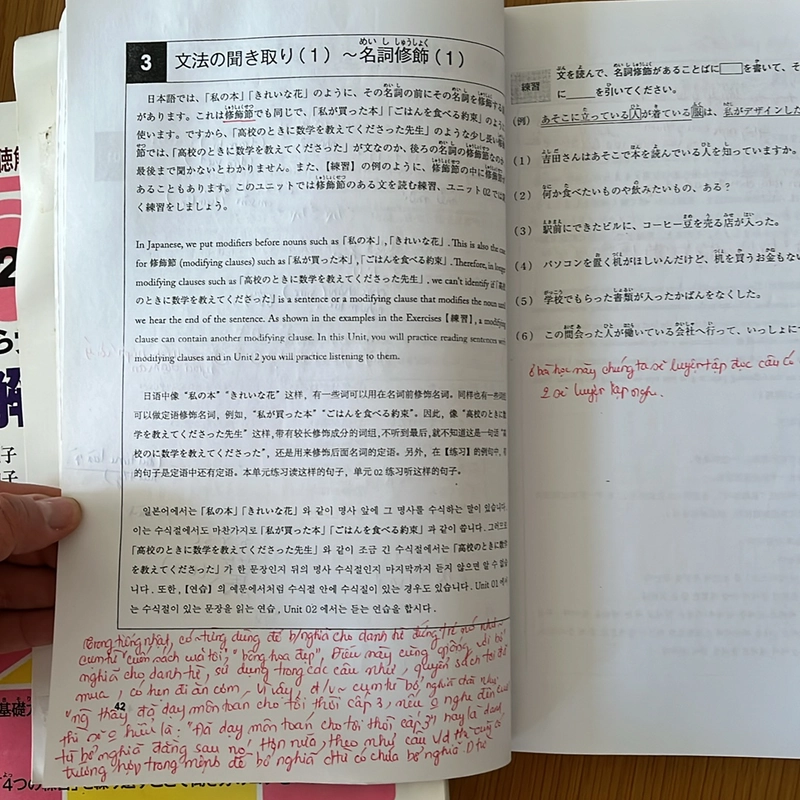 3 文法の聞き取り（1）～名詞修飾（1）
日本語では、「私の本」「きれいな花」のように、その名詞の前にその名詞を修飾する
があります。これは修飾節でも同じで、「私が買った本」「ごはんを食べる約束」のように
使います。ですから、「高校のときに数学を教えてくださった先生」のような少し長い修飾
節では、「高校のときに数学を教えてくださった」が文なのか、後ろの名詞の修飾節なのか
最後まで聞かないとわかりません。また、【練習】の例のように、修飾節の中に修飾節が
あることもあります。このユニットでは修飾節のある文を読む練習、ユニット02では聞
く練習をしましょう。
In Japanese, we put modifiers before nouns such as「私の本」,「きれいな花」. This is also the case
for 修飾節 (modifying clauses) such as「私が買った本」,「ごはんを食べる約束」. Therefore, in longer
modifying clauses such as「高校のときに数学を教えてくださった先生」, we can't identify if「高校
のときに数学を教えてくださった」is a sentence or a modifying clause that modifies the noun until
we hear the end of the sentence. As shown in the examples in the Exercises【練習】, a modifying
clause can contain another modifying clause. In this Unit, you will practice reading sentences with
modifying clauses and in Unit 2 you will practice listening to them.
日语中像“私の本”“きれいな花”这样，有一些词可以用在名词前修饰名词。同样也有一些
可以做定语修饰名词，例如，“私が買った本”“ごはんを食べる約束”。因此，像“高校のときに数
学を教えてくださった先生”这样，带有较长修饰成分的词组，不听到最后，就不知道这是一句话“高
校のに数学を教えてくださった”，还是用来修饰后面名词的定语。另外，在【练习】的例句中，有
的句子是定语中还有定语。本单元练习读这样的句子，单元 02 练习听这样的句子。
일본어에서는「私の本」「きれいな花」와 같이 명사 앞에 그 명사를 수식하는 말이 있습니다.
이는 수식절에서도 마찬가지로「私が買った本」「ごはんを食べる約束」과 같이 씁니다. 그러므로
「高校のときに数学を教えてくださった先生」와 같이 조금 긴 수식절에서는「高校のときに数学
を教えてくださった」가 한 문장인지 뒤의 명사 수식절인지 마지막까지 듣지 않으면 알 수 없습
니다. 또한,【연습】의 예문에서처럼 수식절 안에 수식절이 있는 경우도 있습니다. Unit 01에서
는 수식절이 있는 문장을 읽는 연습, Unit 02에서는 듣는 연습을 합시다.
Trong tiếng nhật, có từng dùng để b/nghĩa cho danh từ đứng trc nó như
cụm từ "cuốn sách của tôi", "bông hoa đẹp", Điều này cũng giống với bổ
nghĩa cho danh từ, sử dụng trong các câu như, quyển sách tôi đã
mua, có hẹn đi ăn cơm, Vì vậy, d/v ~ cụm từ bổ nghĩa dài như
"ng thầy đã dạy môn toán cho tôi thời cấp 3, nếu nghe đến cuối
thì sẽ hiểu là: "Đã dạy môn toán cho tôi thời cấp 3" hay là danh
từ bổ nghĩa đằng sau nó, Hơn nữa, theo như câu v/d thì cũng có
trường hợp trong mệnh đề bổ nghĩa chữ có chứa bổ nghĩa
42
練習 文を読んで、名詞修飾があることばに□を書いて、そ
に＿＿を引いてください。
（例） あそこに立っている人が着ている服は、私がデザインした
（1） 吉田さんはあそこで本を読んでいる人を知っていますか。
（2） 何か食べたいものや飲みたいもの、ある？
（3） 駅前にできたビルに、コーヒー豆を売る店が入った。
（4） パソコンを置く机がほしいんだけど、机を買うお金もない
（5） 学校でもらった書類が入ったかばんをなくした。
（6） この間会った人が働いている会社へ行って、いっしょに
ở bài học này chúng ta sẽ luyện tập đọc câu có
2 sẽ luyện tập nghe.
聴解
2
解
基礎
「4つの